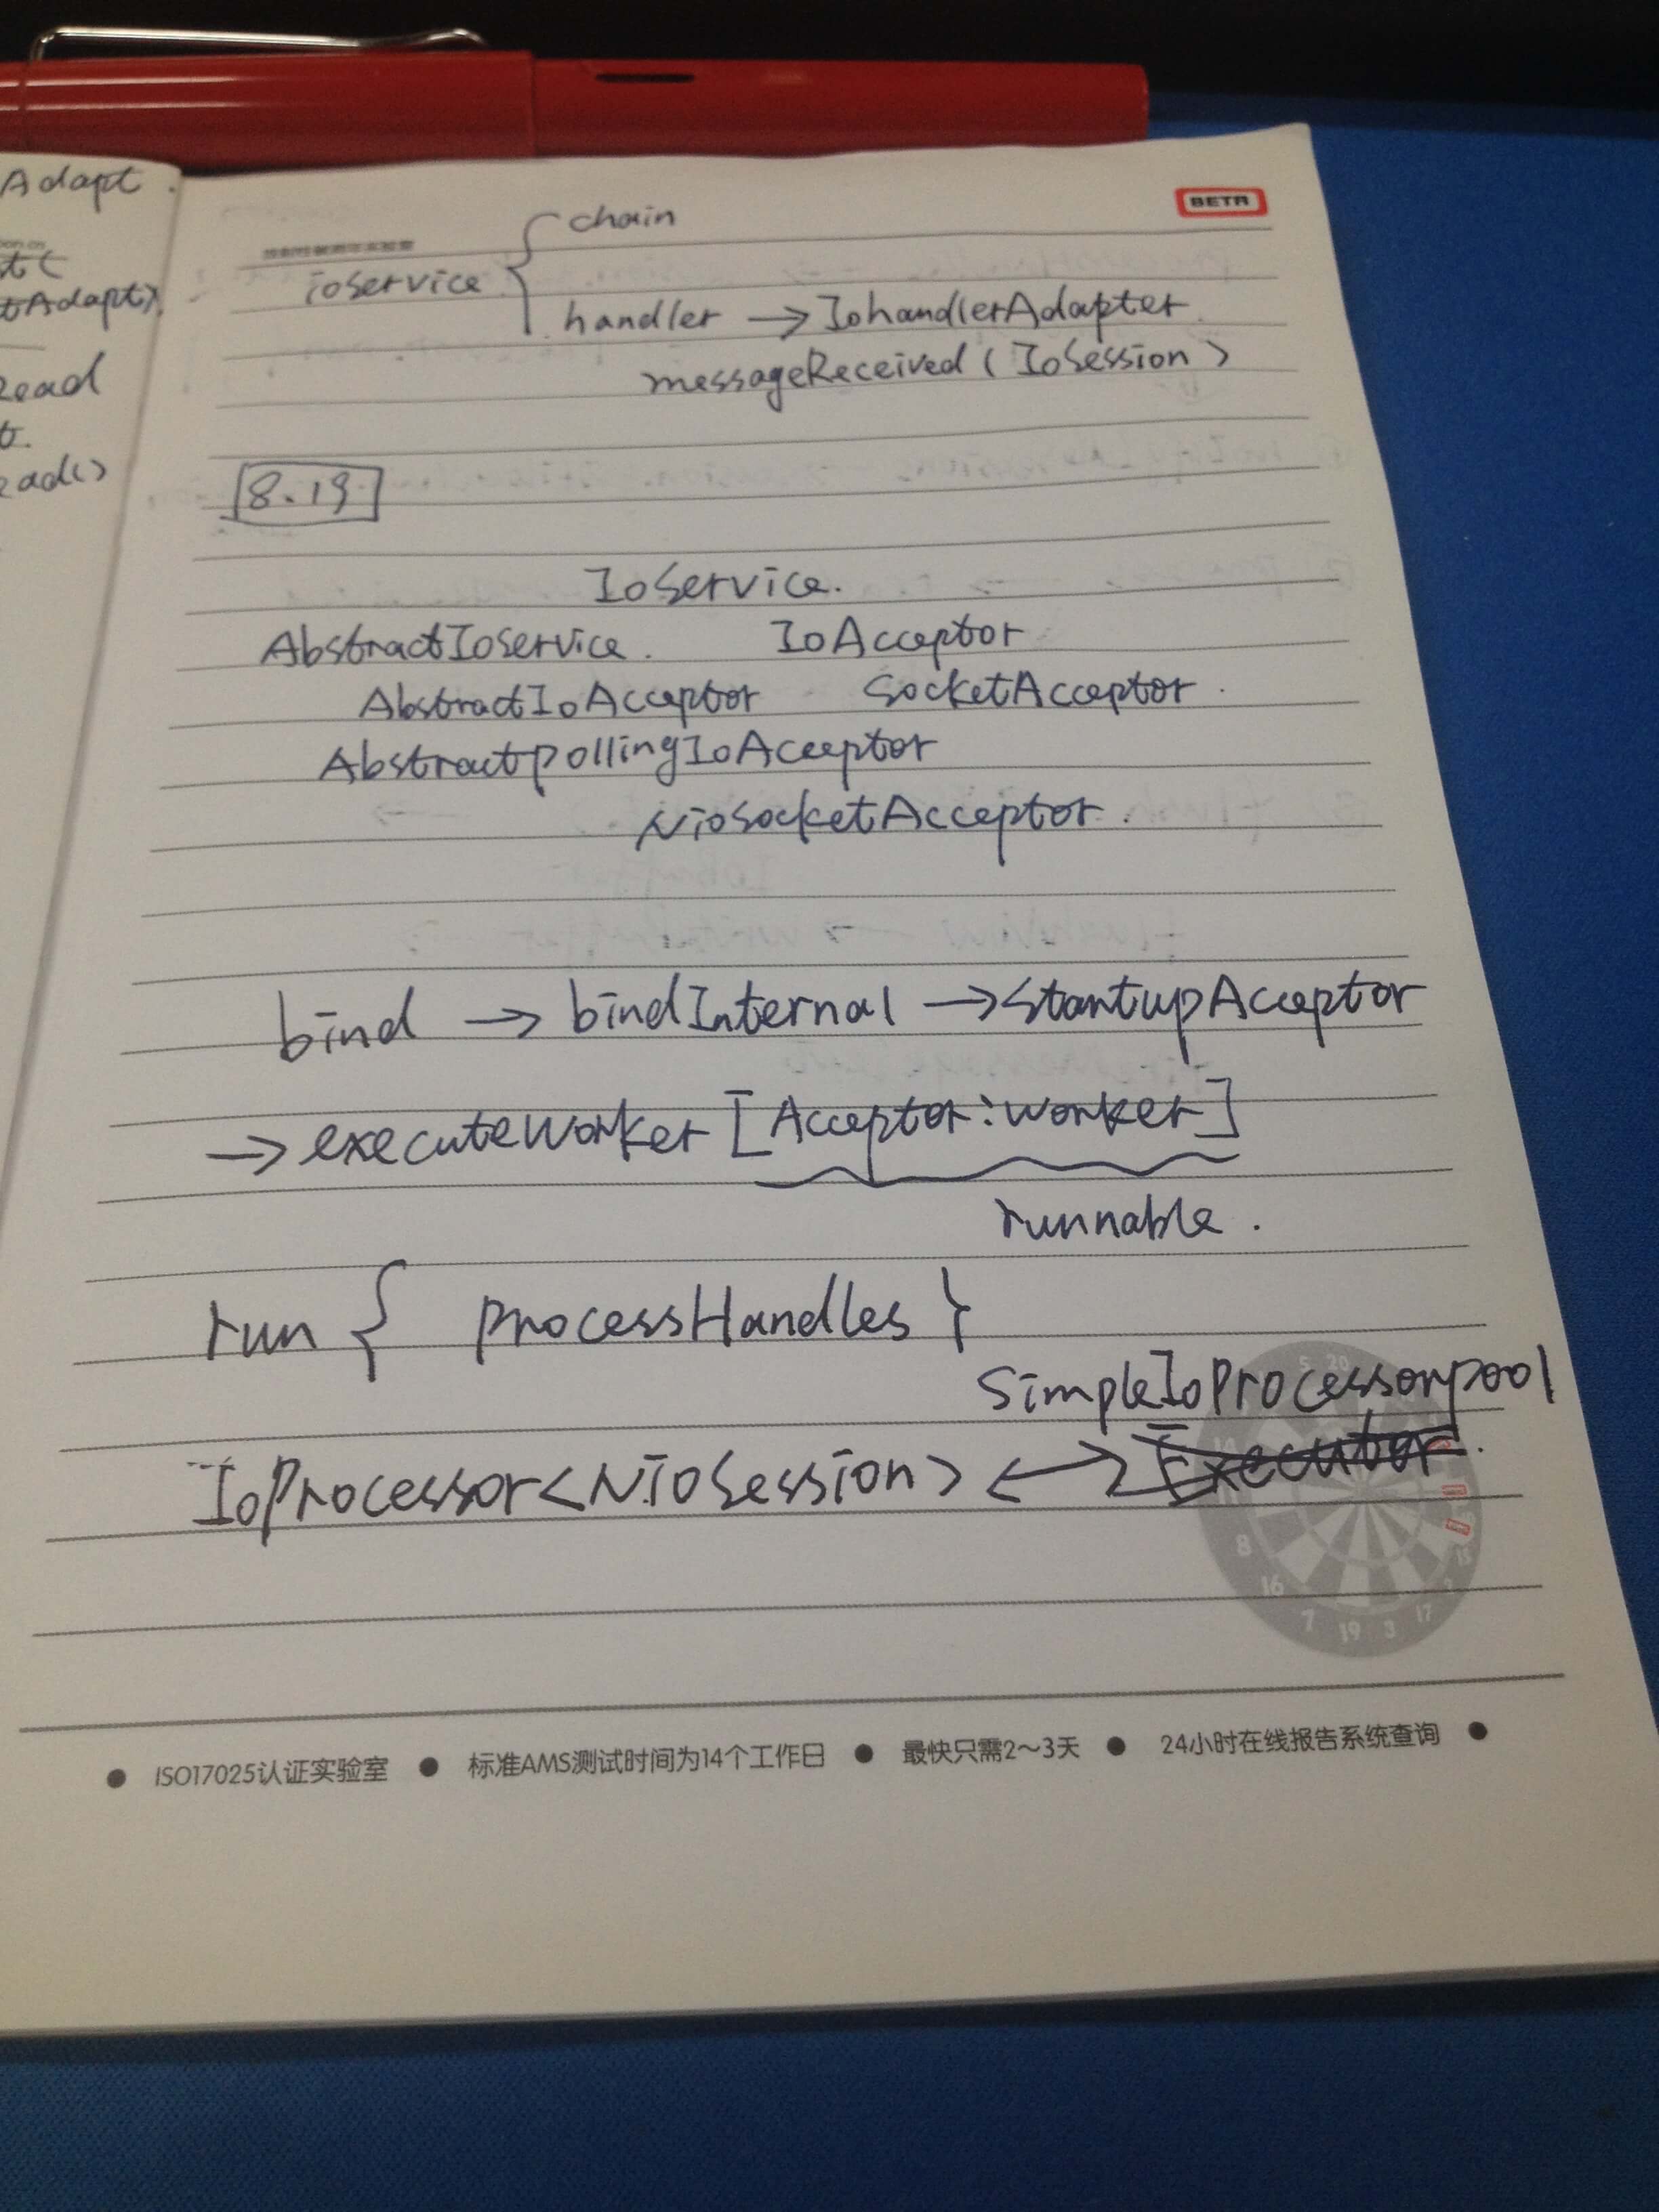 Adapt.
BETA
chain
ioservice
handler → IohandlerAdapter
messageReceived (IoSession)
read
8.19
IoService.
AbstractIoService. IoAcceptor
AbstractIoAcceptor SocketAcceptor.
AbstractpollingIoAcceptor
NioSocketAcceptor.
bind → bindInternal → startupAcceptor
→ executeWorker [Acceptor:worker]
runnable.
run { processHandles }
SimpleIoProcessorpool
IoProcessor<NioSession> ↔ Executor.
8 16 7 19 3 17
● ISO17025认证实验室 ● 标准AMS测试时间为14个工作日 ● 最快只需2～3天 ● 24小时在线报告系统查询 ●